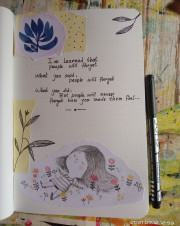 I've learned that
people will forget
What you said,
people will forget
What you did,
But people will never
forget how you made them feel...